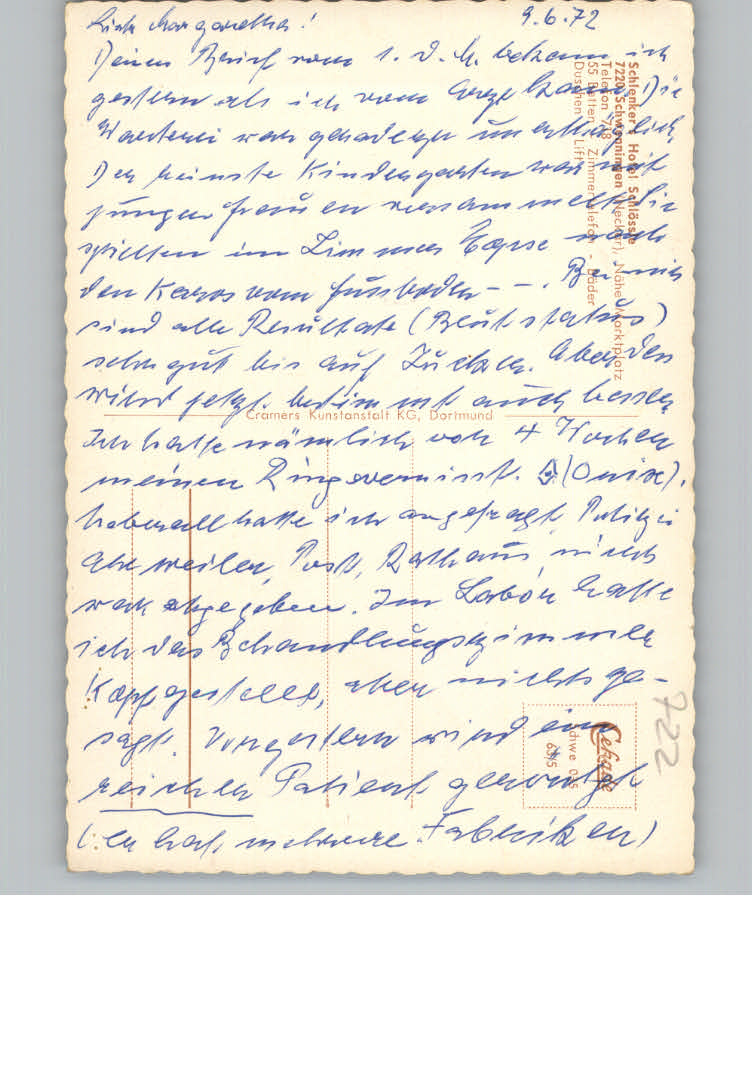 Liebe Margaretha! 9.6.72
Deinen Brief vom 1. d. M. bekam ich
gestern als ich vom Arzt kam. Die
Warterei war geradezu unerträglich.
Der reinste Kindergarten war mit
jungen Frauen versammelt. Sie
spielten im Zimmer nach
den Karos vom Fussboden - - . Bei mir
sind alle Resultate (Blutstatus)
sehr gut bis auf Zucker. Aber der
wird jetzt bestimmt auch besser
Ich hatte nämlich vor 4 Wochen
meinen Ring vermisst. (Onix).
Ueberall hatte ich angefragt, Polizei
Ahrweiler, Post, Rathaus, nichts
war abgegeben. Im Labor hatte
ich das Behandlungszimmer
Kopf gestellt, aber nichts ge-
sagt. Vorgestern wird ein
reicher Patient
(er hat mehrere Fabriken)
Schlenker's Hotel Schlössle
7220 Schwenningen (Neckar), Nähe Marktplatz
Telefon
55 Betten - Zimmertelefon - Bäder
Duschen - Lift
Cramers Kunstanstalt KG, Dortmund
Cekade
63/5
722